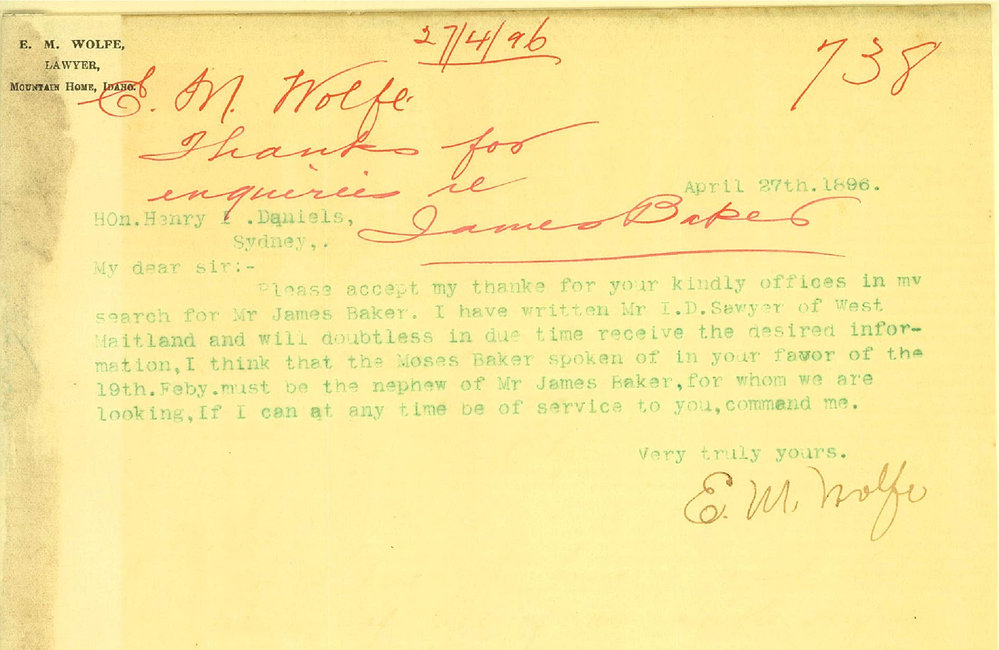 E. M. WOLFE,
LAWYER,
MOUNTAIN HOME, IDAHO.
27/4/96
738
E. M. Wolfe
Thanks for
enquiries re
James Baker
April 27th.1896.
HOn.Henry .Daniels,
Sydney,.
My dear sir:-
Please accept my thanke for your kindly offices in my
search for Mr James Baker. I have written Mr I.D.Sawyer of West
Maitland and will doubtless in due time receive the desired infor-
mation,I think that the Moses Baker spoken of in your favor of the
19th.Feby.must be the nephew of Mr James Baker,for whom we are
looking,If I can at any time be of service to you,command me.
Very truly yours.
E. M. Wolfe